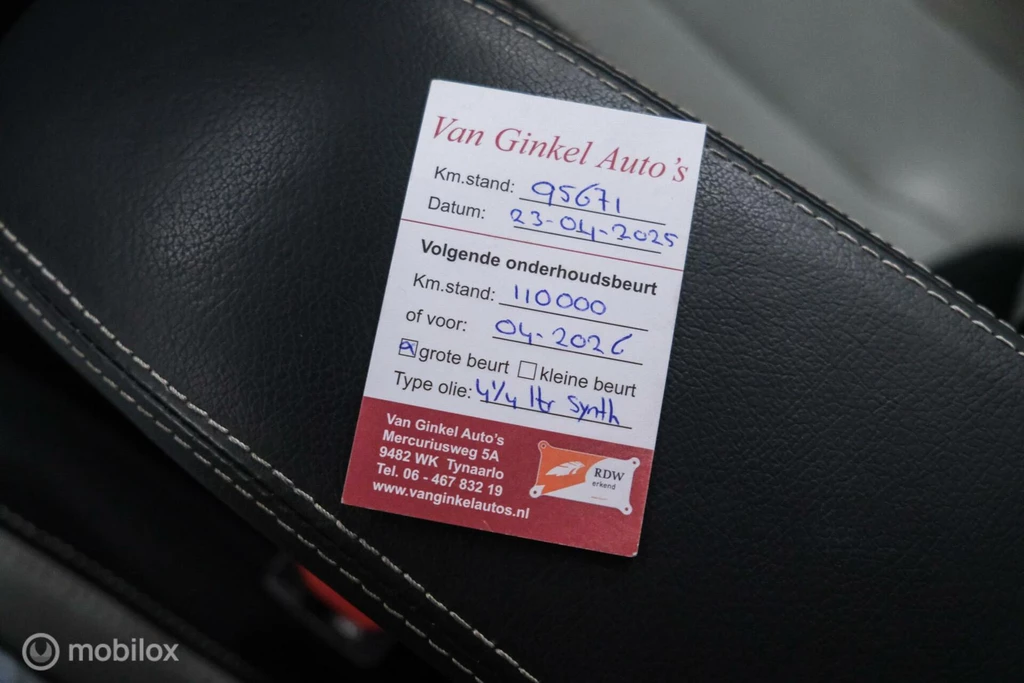 Van Ginkel Auto's
Km.stand: 95671
Datum: 23-04-2025
Volgende onderhoudsbeurt
Km.stand: 110000
of voor: 04-2026
grote beurt kleine beurt
Type olie: 4 1/4 ltr Synth
Van Ginkel Auto's
Mercuriusweg 5A
9482 WK Tynaarlo
Tel. 06 - 467 832 19
www.vanginkelautos.nl
RDW
erkend
mobilox